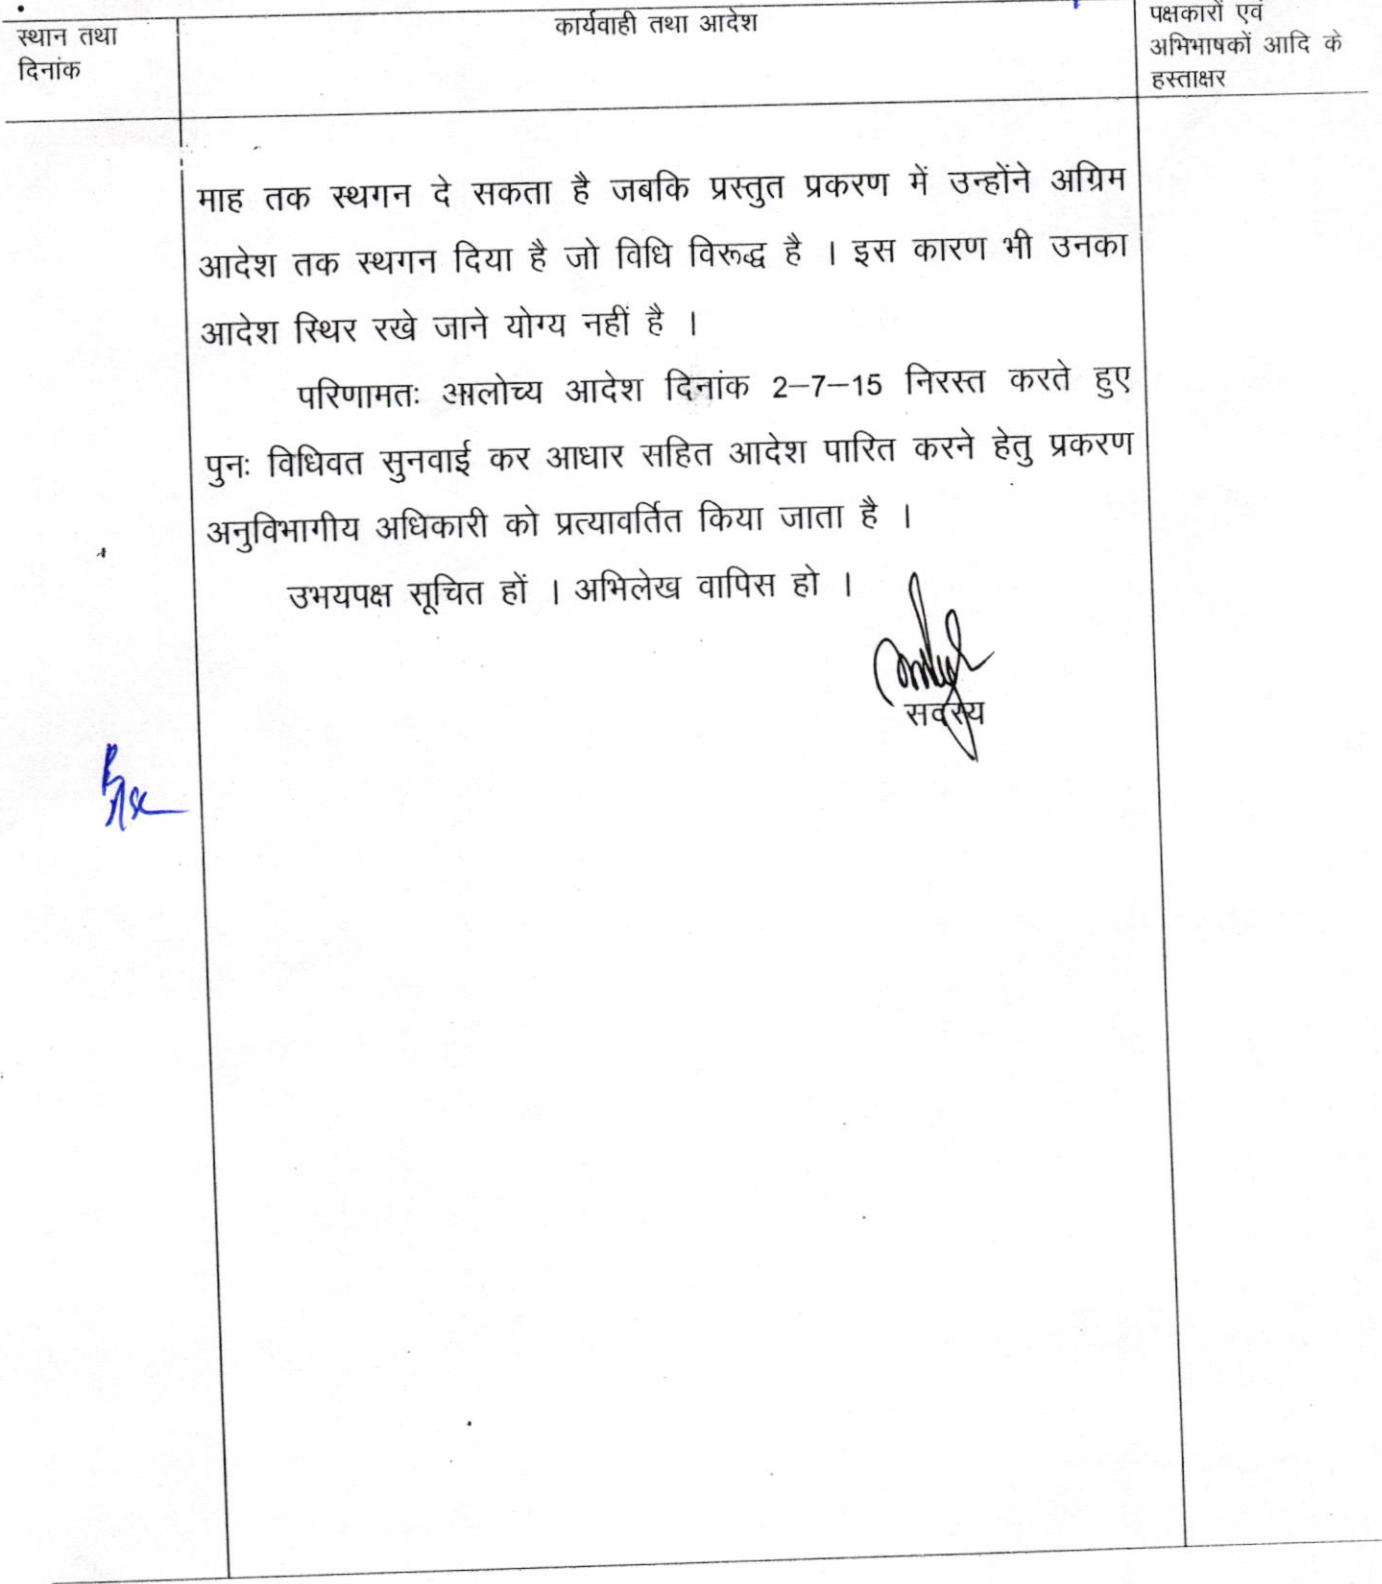 स्थान तथा
दिनांक
कार्यवाही तथा आदेश
पक्षकारों एवं
अभिभाषकों आदि के
हस्ताक्षर
माह तक स्थगन दे सकता है जबकि प्रस्तुत प्रकरण में उन्होंने अग्रिम
आदेश तक स्थगन दिया है जो विधि विरूद्ध है । इस कारण भी उनका
आदेश स्थिर रखे जाने योग्य नहीं है ।
परिणामतः आलोच्य आदेश दिनांक 2–7–15 निरस्त करते हुए
पुनः विधिवत सुनवाई कर आधार सहित आदेश पारित करने हेतु प्रकरण
अनुविभागीय अधिकारी को प्रत्यावर्तित किया जाता है ।
उभयपक्ष सूचित हों । अभिलेख वापिस हो ।
सदस्य